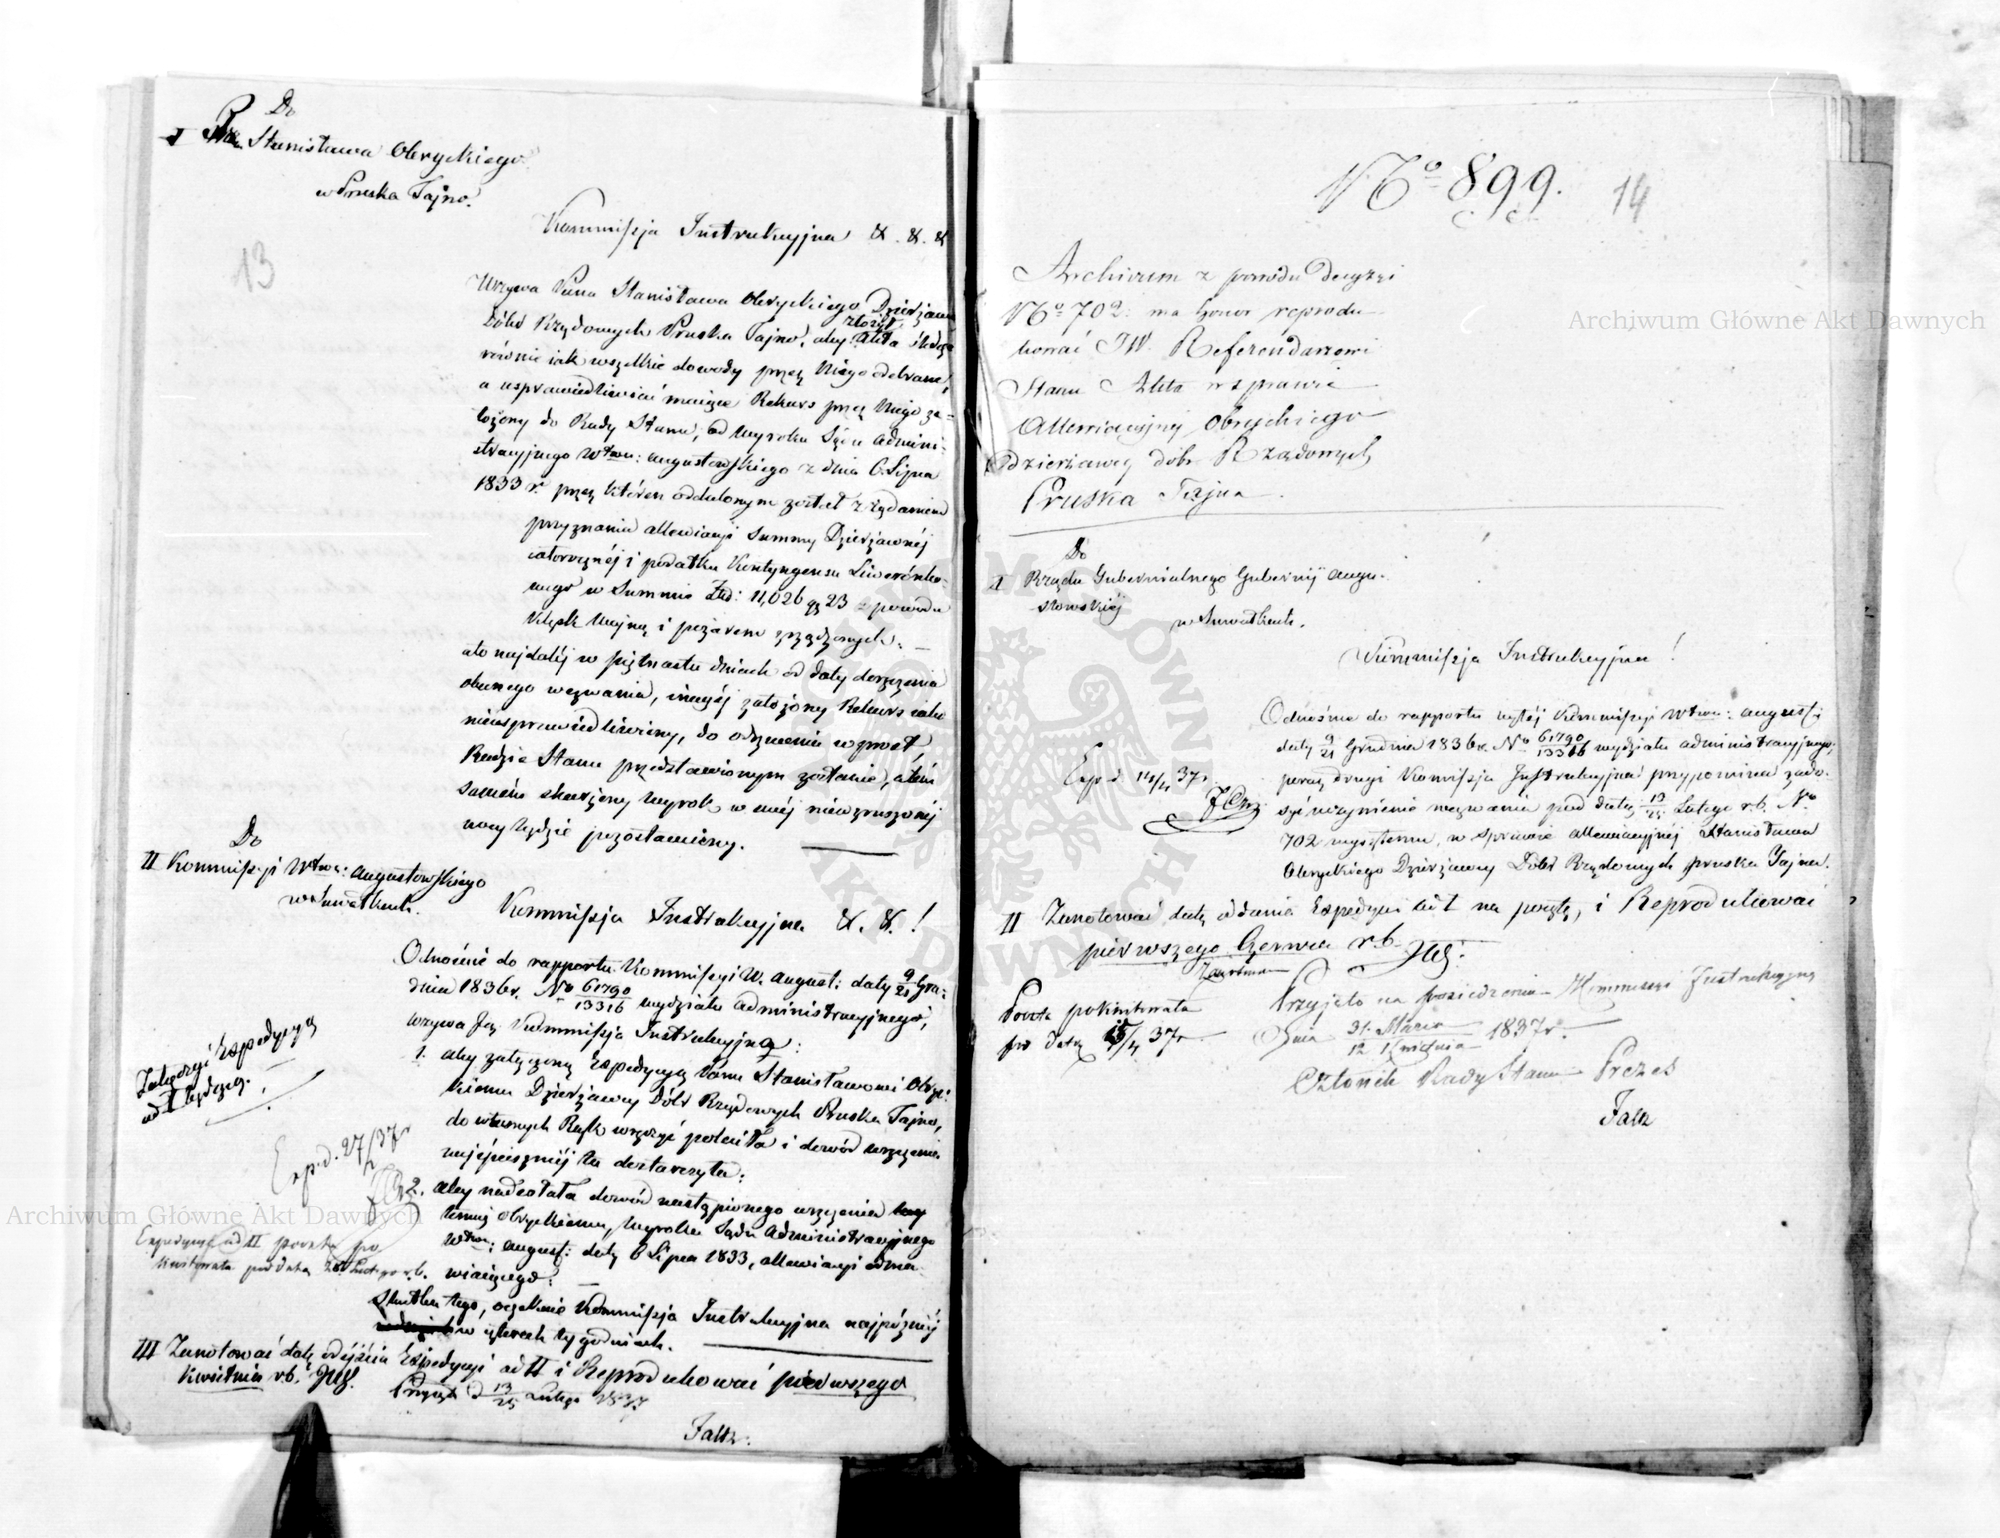 Do
I Stanisława Obryckiego
w Pruska Tajno.
13
Kommissja Instrukcyjna &. &. &
Wzywa Pana Stanisława Obryckiego Dzierżawcę
Dóbr Rządowych Pruska Tajno, aby złożył Akta śledcze
równie iak wszelkie dowody przez Niego odebrane,
a usprawiedliwiać maiące Rekurs przez Niego za-
łożony do Rady Stanu, od Wyroku Sądu Admini-
stracyjnego Wtwa: Augustowskiego z dnia 6 Lipca
1833 r. przez którem oddalonym został z żądaniem
przyznania allewiacyi Summy Dzierżawnéj
całorocznéj i podatku Kontyngensu Liwerunko-
wego w Summie Złp: 11,026 gr 23 z powodu
klęsk Wojną i pożarem zrządzonych. —
a to najdaléj w piętnastu dniach od daty doręczenia
obecnego wezwania, inaczéj założony Rekurs iako
nieusprawiedliwiony, do odrzucenia wprost,
Radzie Stanu przedstawionym zostanie, a tém
samém skarżony Wyrok w swéj niewzruszonéj
mocy będzie pozostawiony.
Do
II Kommissyi Wtwa: Augustowskiego
w Suwałkach.
Kommissja Instrukcyjna &. &. !
Odnośnie do rapportu Kommissyi W. August: daty 9/21 Gru-
dnia 1836 r. No 61790/13316 wydziału administracyjnego,
wzywa Ją Kommissja Instrukcyjna:
1. aby załączoną Expedycyą Panu Stanisławowi Obryc-
kiemu Dzierżawcy Dóbr Rządowych Pruska Tajno,
do własnych Rąk wręczyć poleciła i dowód wręczenia
najśpieszniéj tu dostarczyła:
Załączyć Expedycyą
ad I będącą.
Exp. d. 27/2 37 r
2. aby nadesłała dowód nastąpionego wręczenia
temuż Obryckiemu, Wyroku Sądu Administracyjnego
Wtwa: August: daty 6 Lipca 1833, allewiacyi odma-
wiaiącego: —
Expedycya ad II poszta po
kwitowała pod datą 28 Lutego r.b.
Skutku tego, oczekuie Kommissja Instrukcyjna najpóźniéj
w czterech tygodniach.
III Zanotować datę odejścia Expedycyi ad II i Reprodukować pierwszego
Kwietnia r.b.
Przyjęto d 13/25 Lutego 1837
Faltz.
No 899. 14
Archivum z powodu decyzyi
No 702. ma honor reprodu-
kować JW. Referendarzowi
Stanu Akta w sprawie
Allewiacyjnéj Obryckiego
dzierżawcy dóbr Rządowych
Pruska Tajna.
Do
I Rządu Gubernialnego Gubernij Augu-
stowskiéj
w Suwałkach.
Kommissja Instrukcyjna!
Odnośnie do rapportu byłéj Kommissyi Wtwa: August:
daty 9/21 Grudnia 1836 r. No 61790/13316 wydziału administracyjnego,
poraz drugi Kommissja Instrukcyjna przypomina zado-
syć uczynienie wezwania pod datą 13/25 Lutego r.b. No
702 wyszłemu, w sprawie allewiacyjnéj Stanisława
Obryckiego Dzierżawcy Dóbr Rządowych Pruska Tajna.
Exp. d 14/4 37 r.
II Zanotować datę oddania Expedycyi ad I na pocztę, i Reprodukować
pierwszego Czerwca r.b.
Poczta pokwitowała
pod datą 15/4 37 r
Przyjęto na posiedzeniu Kommissyi Instrukcyjnéj
Dnia 31. Marca/12 Kwietnia 1837 r.
Członek Rady Stanu Prezes
Faltz
Archiwum Główne Akt Dawnych
Archiwum Główne Akt Dawnych
ARCHIWUM GŁÓWNE AKT DAWNYCH